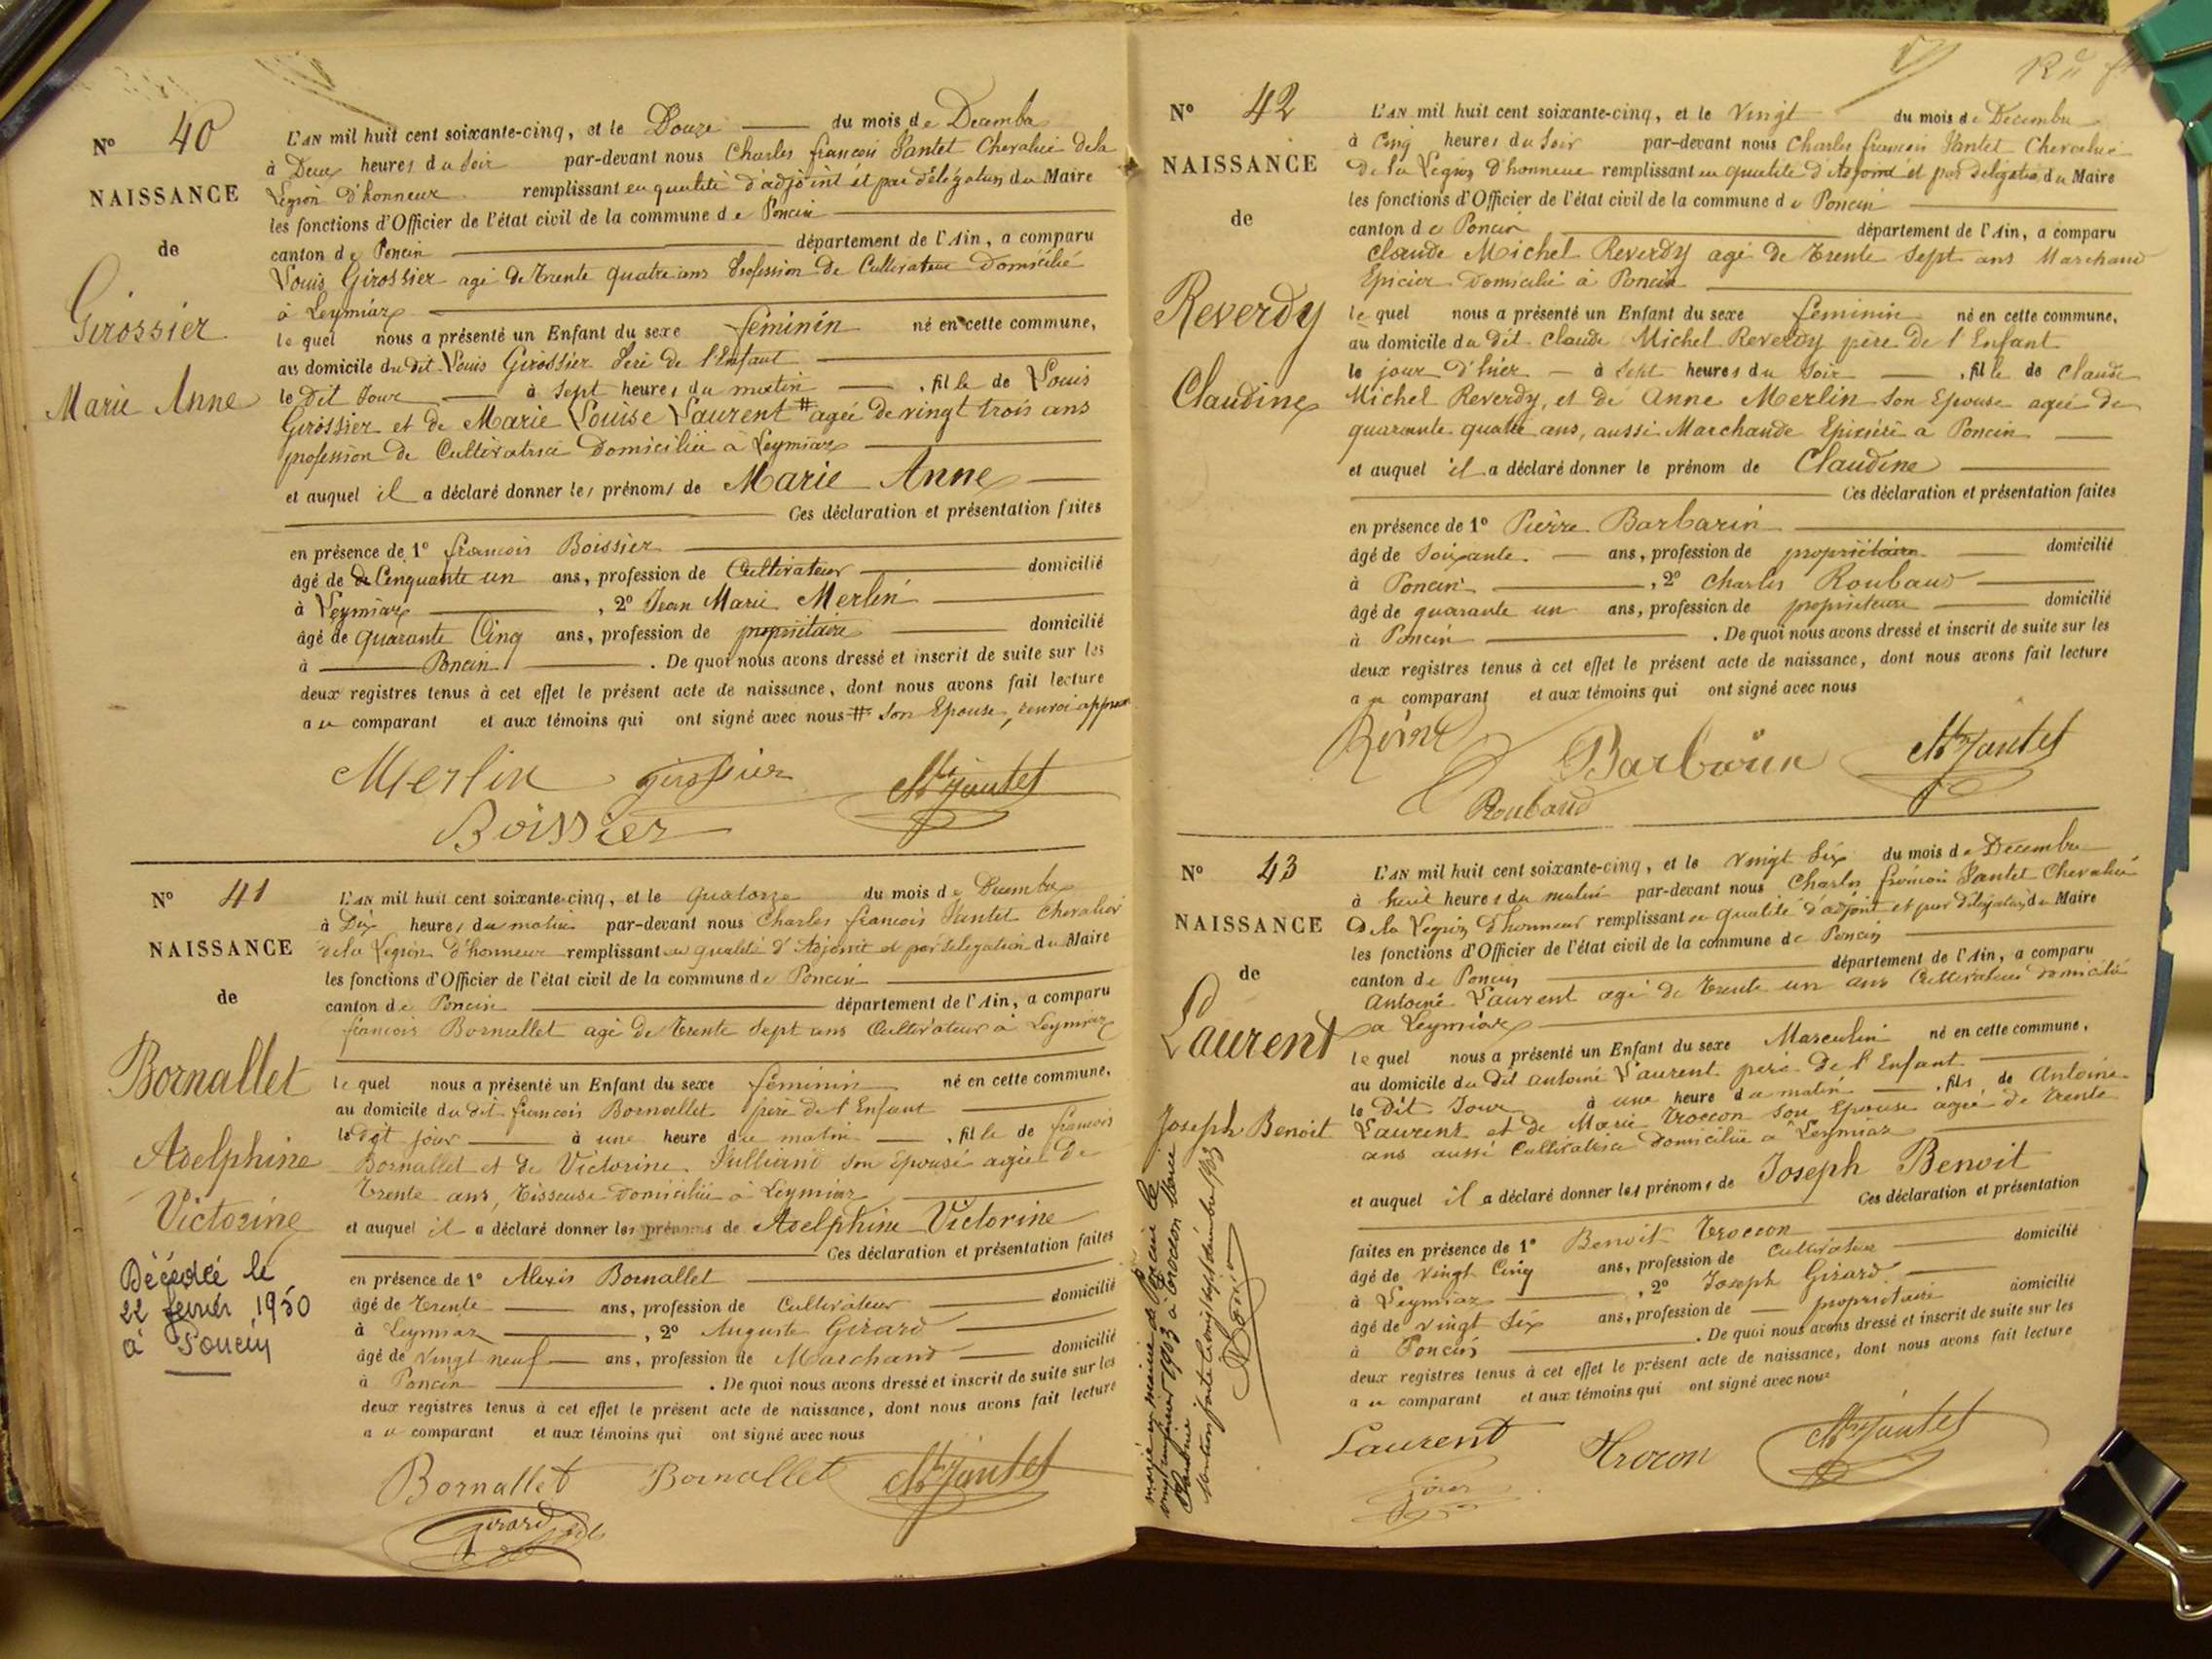 N° 40
NAISSANCE
de
Girossier
Marie Anne
L'AN mil huit cent soixante-cinq, et le Douze du mois de Decembre
à Deux heures du soir par-devant nous Charles françois Jantet Chevalier de la
Légion d'honneur remplissant en qualité d'adjoint et par délégation du Maire
les fonctions d'Officier de l'état civil de la commune de Poncin
canton de Poncin département de l'Ain, a comparu
Louis Girossier agé de trente quatre ans Profession de Cultivateur Domicilié
à Leymiaz
le quel nous a présenté un Enfant du sexe féminin né en cette commune,
au domicile du dit Louis Girossier Père de l'Enfant
le dit Jour à sept heures du matin, fille de Louis
Girossier et de Marie Louise Laurent # agée de vingt trois ans
profession de Cultivatrice Domiciliée à Leymiaz
et auquel il a déclaré donner les prénoms de Marie Anne
Ces déclaration et présentation faites
en présence de 1° françois Boissier
âgé de Cinquante un ans, profession de Cultivateur domicilié
à Leymiaz, 2° Jean Marie Merlin
âgé de quarante Cinq ans, profession de propriétaire domicilié
à Poncin. De quoi nous avons dressé et inscrit de suite sur les
deux registres tenus à cet effet le présent acte de naissance, dont nous avons fait lecture
au comparant et aux témoins qui ont signé avec nous # son Epouse, renvoi approu
Merlin girossier Ch Jantet
Boissier
N° 41
NAISSANCE
de
Bornallet
Adelphine
Victorine
Décédée le
22 fevrier 1950
à Poncin
L'AN mil huit cent soixante-cinq, et le quatorze du mois de Decembre
à Dix heures du matin par-devant nous Charles françois Jantet Chevalier
de la Légion d'honneur remplissant en qualité d'Adjoint et par délégation du Maire
les fonctions d'Officier de l'état civil de la commune de Poncin
canton de Poncin département de l'Ain, a comparu
françois Bornallet agé de trente sept ans Cultivateur à Leymiaz
le quel nous a présenté un Enfant du sexe féminin né en cette commune,
au domicile du dit françois Bornallet père de l'Enfant
le dit jour à une heure du matin, fille de françois
Bornallet et de Victorine Julliand son épouse agée de
trente ans, Tisseuse domiciliée à Leymiaz
et auquel il a déclaré donner les prénoms de Adelphine Victorine
Ces déclaration et présentation faites
en présence de 1° Alexis Bornallet
âgé de trente ans, profession de Cultivateur domicilié
à Leymiaz, 2° Auguste Girard
âgé de vingt neuf ans, profession de Marchand domicilié
à Poncin. De quoi nous avons dressé et inscrit de suite sur les
deux registres tenus à cet effet le présent acte de naissance, dont nous avons fait lecture
au comparant et aux témoins qui ont signé avec nous
Bornallet Bornallet Ch Jantet
Girard
N° 42
NAISSANCE
de
Reverdy
Claudine
L'AN mil huit cent soixante-cinq, et le vingt du mois de Decembre
à Cinq heures du soir par-devant nous Charles françois Jantet Chevalier
de la Légion d'honneur remplissant en qualité d'Adjoint et par délégation du Maire
les fonctions d'Officier de l'état civil de la commune de Poncin
canton de Poncin département de l'Ain, a comparu
Claude Michel Reverdy agé de trente sept ans Marchand
Epicier Domicilié à Poncin
le quel nous a présenté un Enfant du sexe féminin né en cette commune,
au domicile du dit Claude Michel Reverdy père de l'Enfant
le jour d'hier à sept heures du soir, fille de Claude
Michel Reverdy, et de Anne Merlin son Epouse agée de
quarante quatre ans, aussi Marchande Epicière à Poncin
et auquel il a déclaré donner le prénom de Claudine
Ces déclaration et présentation faites
en présence de 1° Pierre Barbarin
âgé de soixante ans, profession de propriétaire domicilié
à Poncin, 2° Charles Roubaud
âgé de quarante un ans, profession de propriétaire domicilié
à Poncin. De quoi nous avons dressé et inscrit de suite sur les
deux registres tenus à cet effet le présent acte de naissance, dont nous avons fait lecture
au comparant et aux témoins qui ont signé avec nous
Barbarin Ch Jantet
Roubaud
N° 43
NAISSANCE
de
Laurent
Joseph Benoit
L'AN mil huit cent soixante-cinq, et le vingt six du mois de Decembre
à huit heures du matin par-devant nous Charles françois Jantet Chevalier
de la Légion d'honneur remplissant en qualité d'adjoint et par délégation du Maire
les fonctions d'Officier de l'état civil de la commune de Poncin
canton de Poncin département de l'Ain, a comparu
Antoine Laurent agé de trente un ans Cultivateur domicilié
à Leymiaz
le quel nous a présenté un Enfant du sexe Masculin né en cette commune,
au domicile du dit antoine Laurent père de l'Enfant
le Dit Jour à une heure du matin, fils de Antoine
Laurent et de Marie Troccon son Epouse agée de trente
ans aussi Cultivatrice domiciliée à Leymiaz
et auquel il a déclaré donner les prénoms de Joseph Benoit
Ces déclaration et présentation
faites en présence de 1° Benoit Troccon
âgé de vingt Cinq ans, profession de Cultivateur domicilié
à Leymiaz, 2° Joseph Girard
âgé de vingt six ans, profession de propriétaire domicilié
à Poncin. De quoi nous avons dressé et inscrit de suite sur les
deux registres tenus à cet effet le présent acte de naissance, dont nous avons fait lecture
au comparant et aux témoins qui ont signé avec nous
Laurent Trocon Ch Jantet
marié en mairie de Poncin le
1903 à Trocon Marie
Mention faite le vingt sept décembre 1903